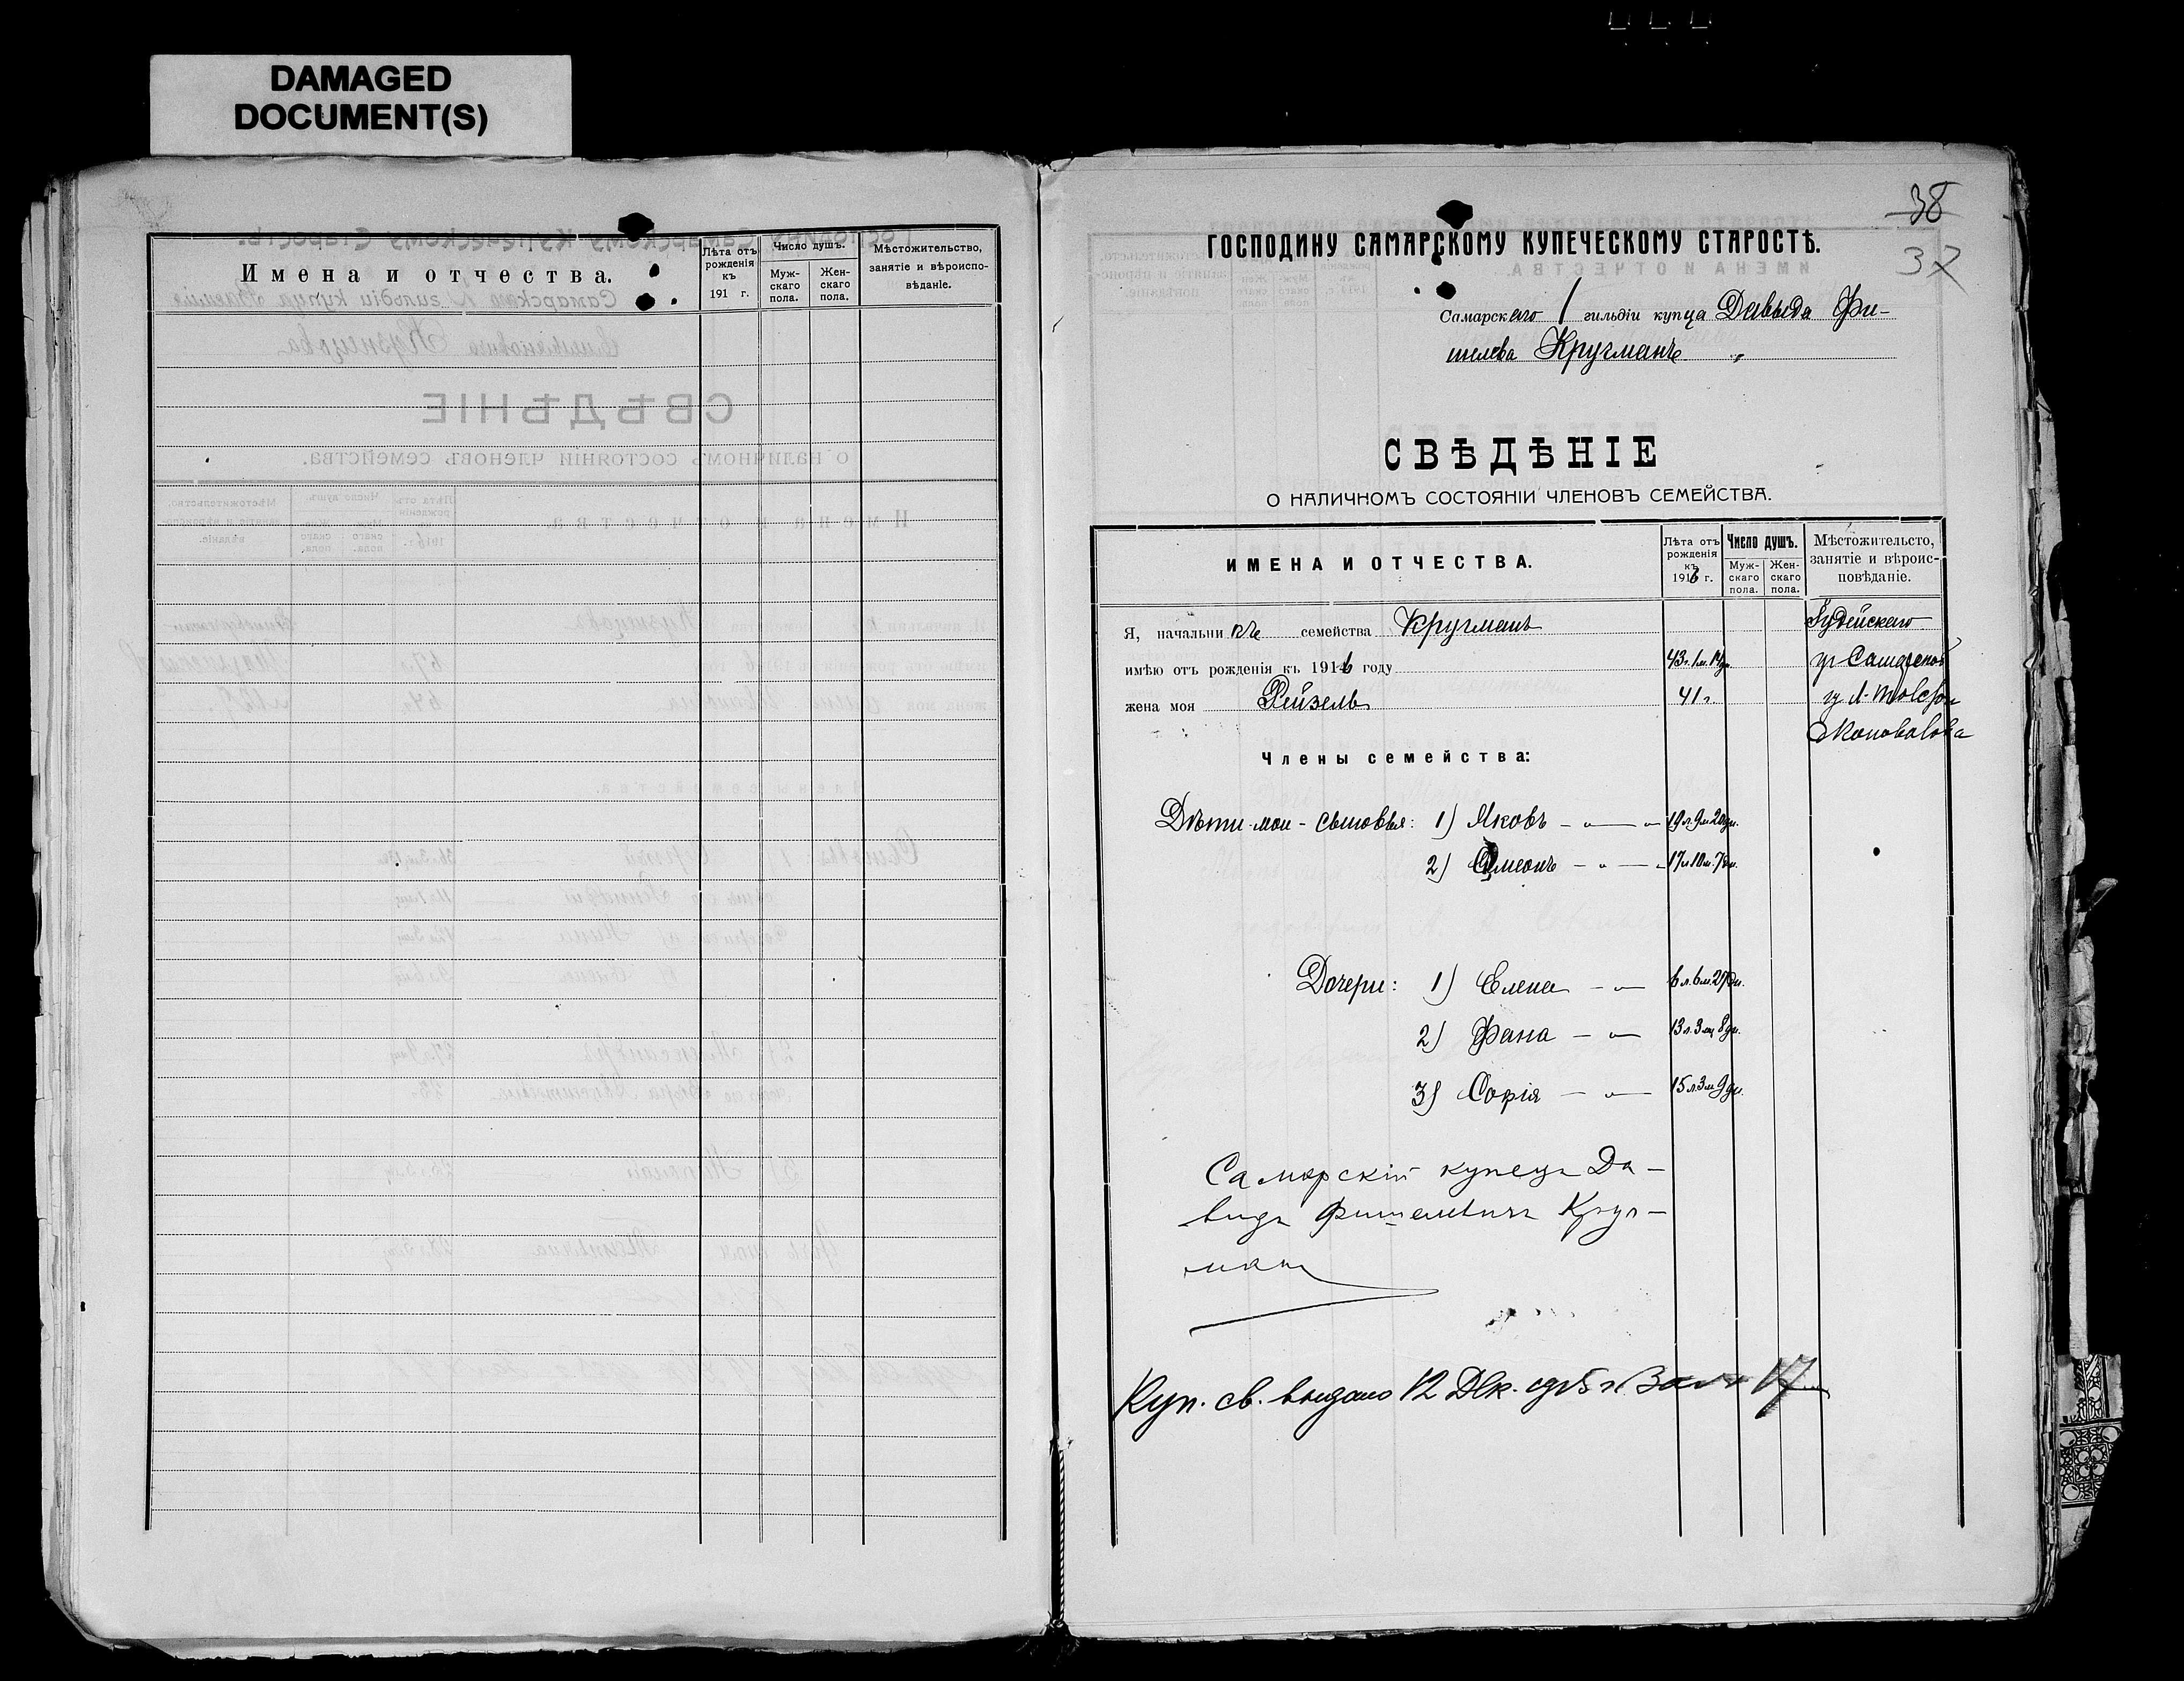 DAMAGED
DOCUMENT(S)
Имена и отчества.
Лѣта отъ
рожденія
къ
191 г.
Число душъ.
Муж-
скаго
пола.
Жен-
скаго
пола.
Мѣстожительство,
занятіе и вѣроиспо-
вѣданіе.
38
37
ГОСПОДИНУ САМАРСКОМУ КУПЕЧЕСКОМУ СТАРОСТѢ.
Самарскаго 1 гильдіи купца Давыда Фи-
шелева Кругманъ
СВѢДѢНІЕ
О НАЛИЧНОМЪ СОСТОЯНІИ ЧЛЕНОВЪ СЕМЕЙСТВА.
ИМЕНА И ОТЧЕСТВА.
Лѣта отъ
рожденія
къ
1916 г.
Число душъ.
Муж-
скаго
пола.
Жен-
скаго
пола.
Мѣстожительсто,
занятіе и вѣроис-
повѣданіе.
Я, начальникъ семейства Кругманъ Іудейскаго
имѣю отъ рожденія къ 1916 году 43 г. 1 м. 14 дн.
жена моя Рейзель 41 г.
Коновалова
Члены семейства:
Дѣти мои - сыновья: 1) Яковъ - " - 19 л. 9 м. 20 дн.
2) Симеонъ - " - 17 л 10 м. 7 дн.
Дочери: 1) Елена - " - 6 л. 6 м. 27 дн.
2) Фана - " - 13 л. 3 м 8 дн.
3) Софія - " - 15 л. 3 м 9 дн.
Самарскій купецъ Да-
видъ Фишелевичъ Круг-
манъ
Куп. св. выдано 12 Дек. 17